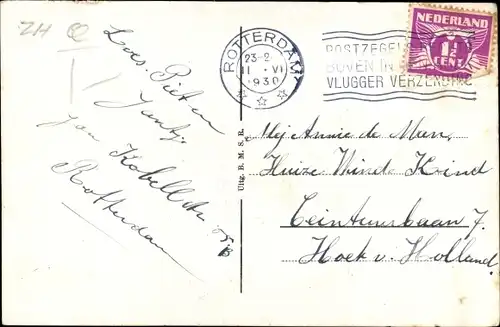 ZH
Loes. Pieten
Jantj.
Jan Kobellstr. 55b
Rotterdam
ROTTERDAM
23-2
II VI
1930
POSTZEGELS
BOVEN IN
VLUGGER VERZENDING
NEDERLAND
1½
CENT
Uitg. B. M. S. R.
Mej Annie de Man,
Huize Wind Kind
Ceintuurbaan 7.
Hoek v. Holland.